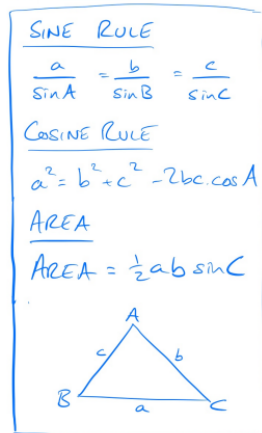 SINE RULE
a/sinA = b/sinB = c/sinC
COSINE RULE
a² = b² + c² - 2bc.cosA
AREA
AREA = ½ab sinC
A
c b
B a C